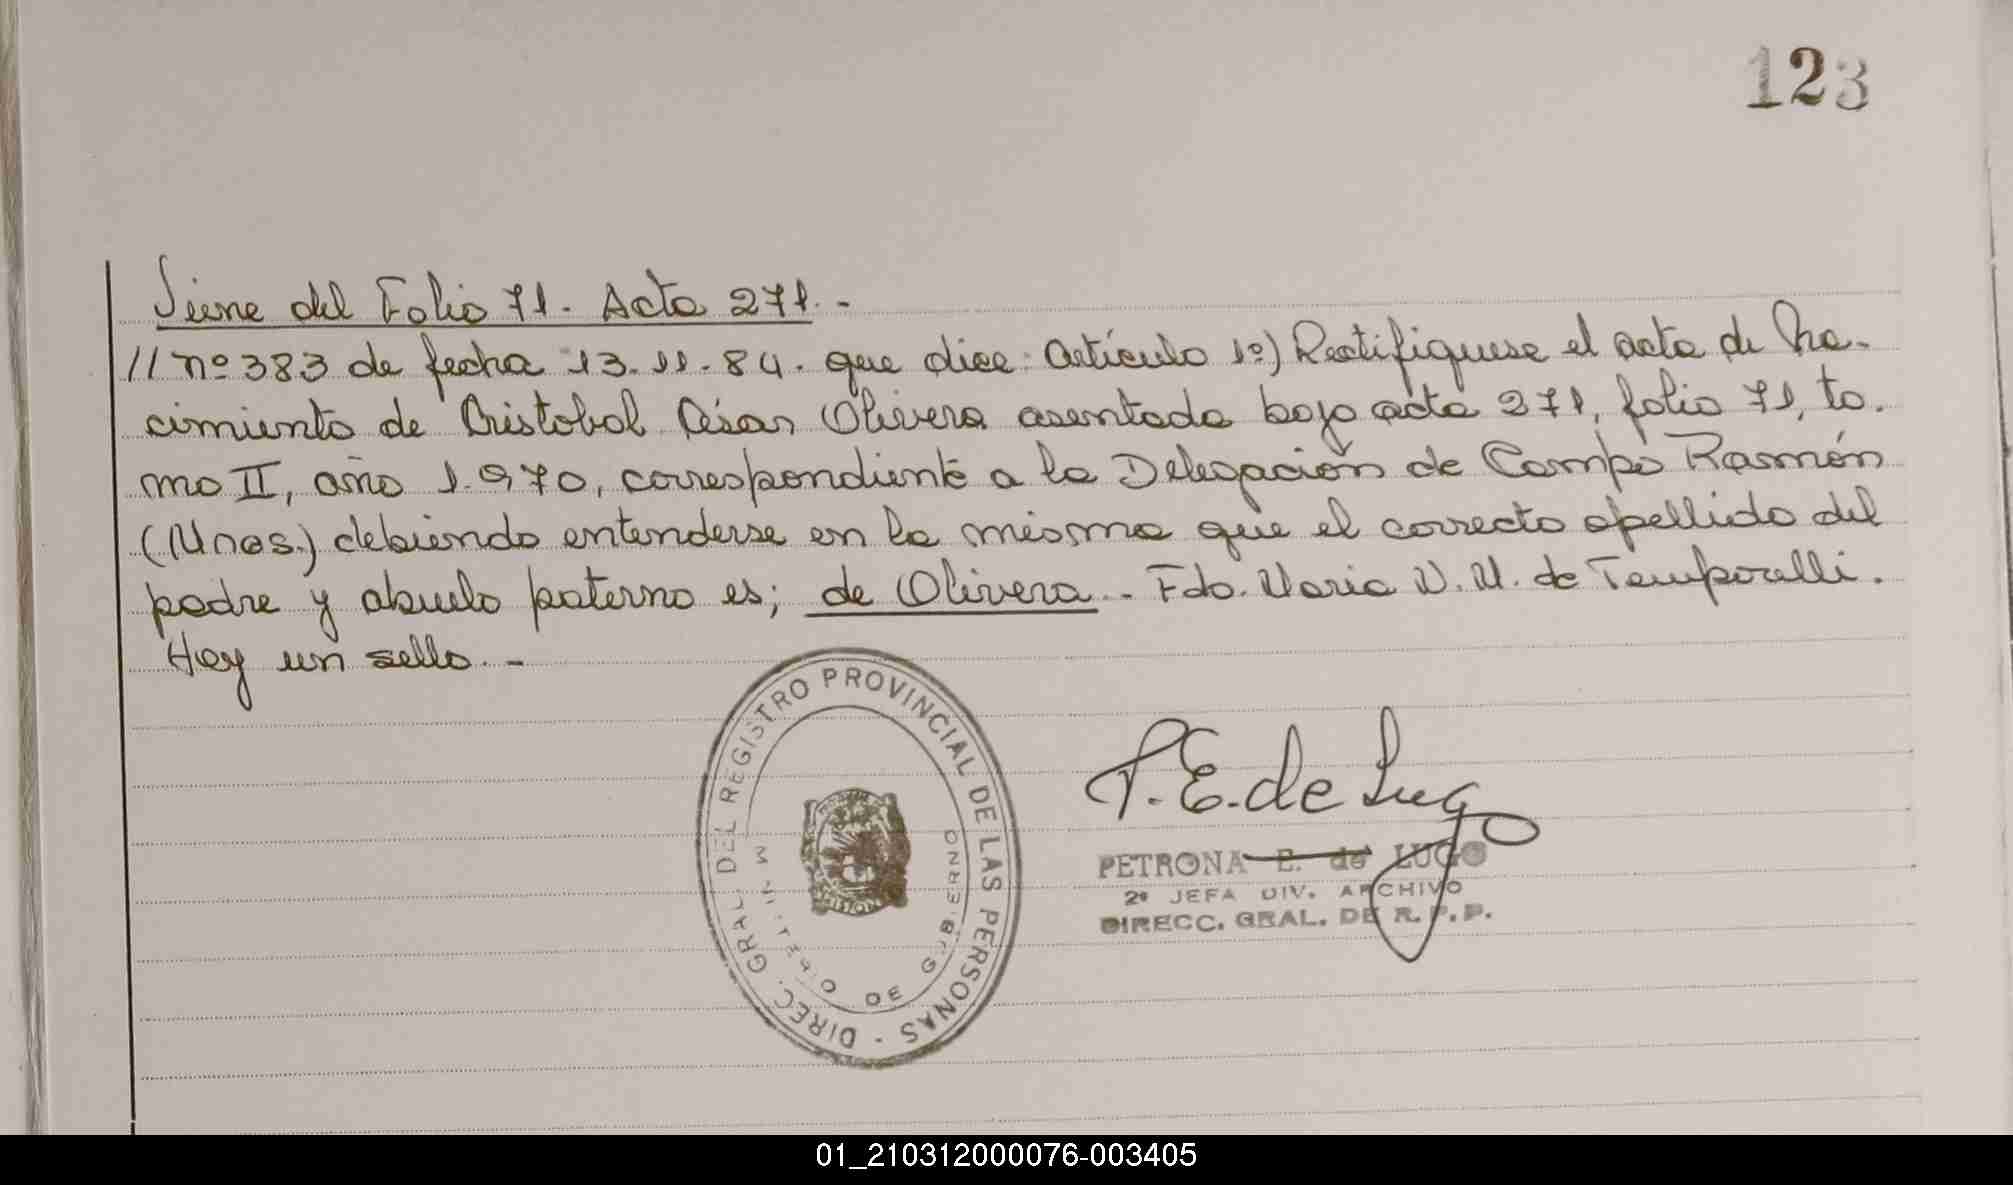 123
Viene del Folio 71. Acta 271.-
// nº 383 de fecha 13.11.84. que dice: Artículo 1º) Rectifíquese el acta de Na-
cimiento de Cristobal César Olivera asentada bajo acta 271, folio 71, to-
mo II, año 1.970, correspondiente a la Delegación de Campo Ramón
(Mnes.) debiendo entenderse en la misma que el correcto apellido del
padre y abuelo paterno es; de Olivera.- Fdo. Maria N. M. de Temporelli.
Hay un sello.-
DIREC. GRAL. DEL REGISTRO PROVINCIAL DE LAS PERSONAS -
MISIONES
P. E. de Lugo
PETRONA E. de LUGO
2º JEFA DIV. ARCHIVO
DIRECC. GRAL. DE R. P. P.
01_210312000076-003405